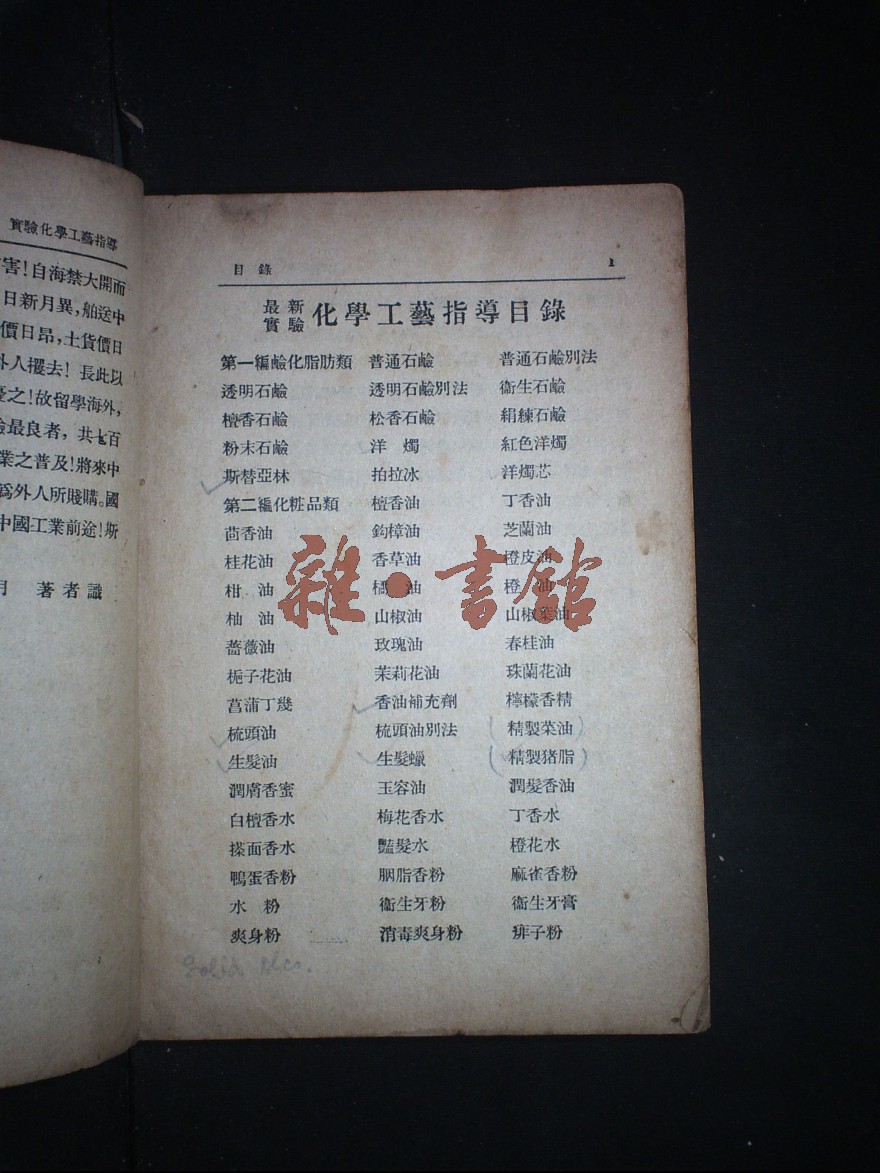 實驗化學工藝指導
害!自海禁大開而
日新月異,舶送中
價日昂,土貨價日
外人攫去! 長此以
之!故留學海外,
最良者, 共七百
業之普及!將來中
爲外人所賤購。國
中國工業前途!斯
月 著者識
目錄 1
最新實驗 化學工藝指導目錄
第一編鹼化脂肪類 普通石鹼 普通石鹼別法
透明石鹼 透明石鹼別法 衞生石鹼
檀香石鹼 松香石鹼 絹練石鹼
粉末石鹼 洋燭 紅色洋燭
斯替亞林 拍拉冰 洋燭芯
第二編化粧品類 檀香油 丁香油
茴香油 鈎樟油 芝蘭油
桂花油 香草油 橙皮油
柑油 橘油 橙油
柚油 山椒油 山椒葉油
薔薇油 玫瑰油 春桂油
梔子花油 茉莉花油 珠蘭花油
菖蒲丁幾 香油補充劑 檸檬香精
梳頭油 梳頭油別法 (精製菜油)
生髮油 生髮蠟 (精製猪脂)
潤膚香蜜 玉容油 潤髮香油
白檀香水 梅花香水 丁香水
搽面香水 豔髮水 橙花水
鴨蛋香粉 胭脂香粉 麻雀香粉
水粉 衞生牙粉 衞生牙膏
爽身粉 消毒爽身粉 痱子粉
雜·書館